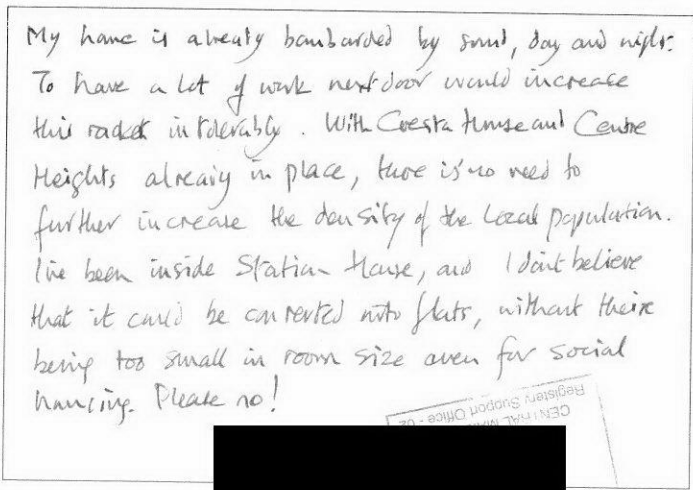 My home is already bombarded by sound, day and night.
To have a lot of work next door would increase
this racket intolerably. With Cresta House and Centre
Heights already in place, there is no need to
further increase the density of the local population.
I've been inside Station House, and I don't believe
that it could be converted into flats, without their
being too small in room size even for social
housing. Please no!
Registery Support Office - 02
CENTRAL